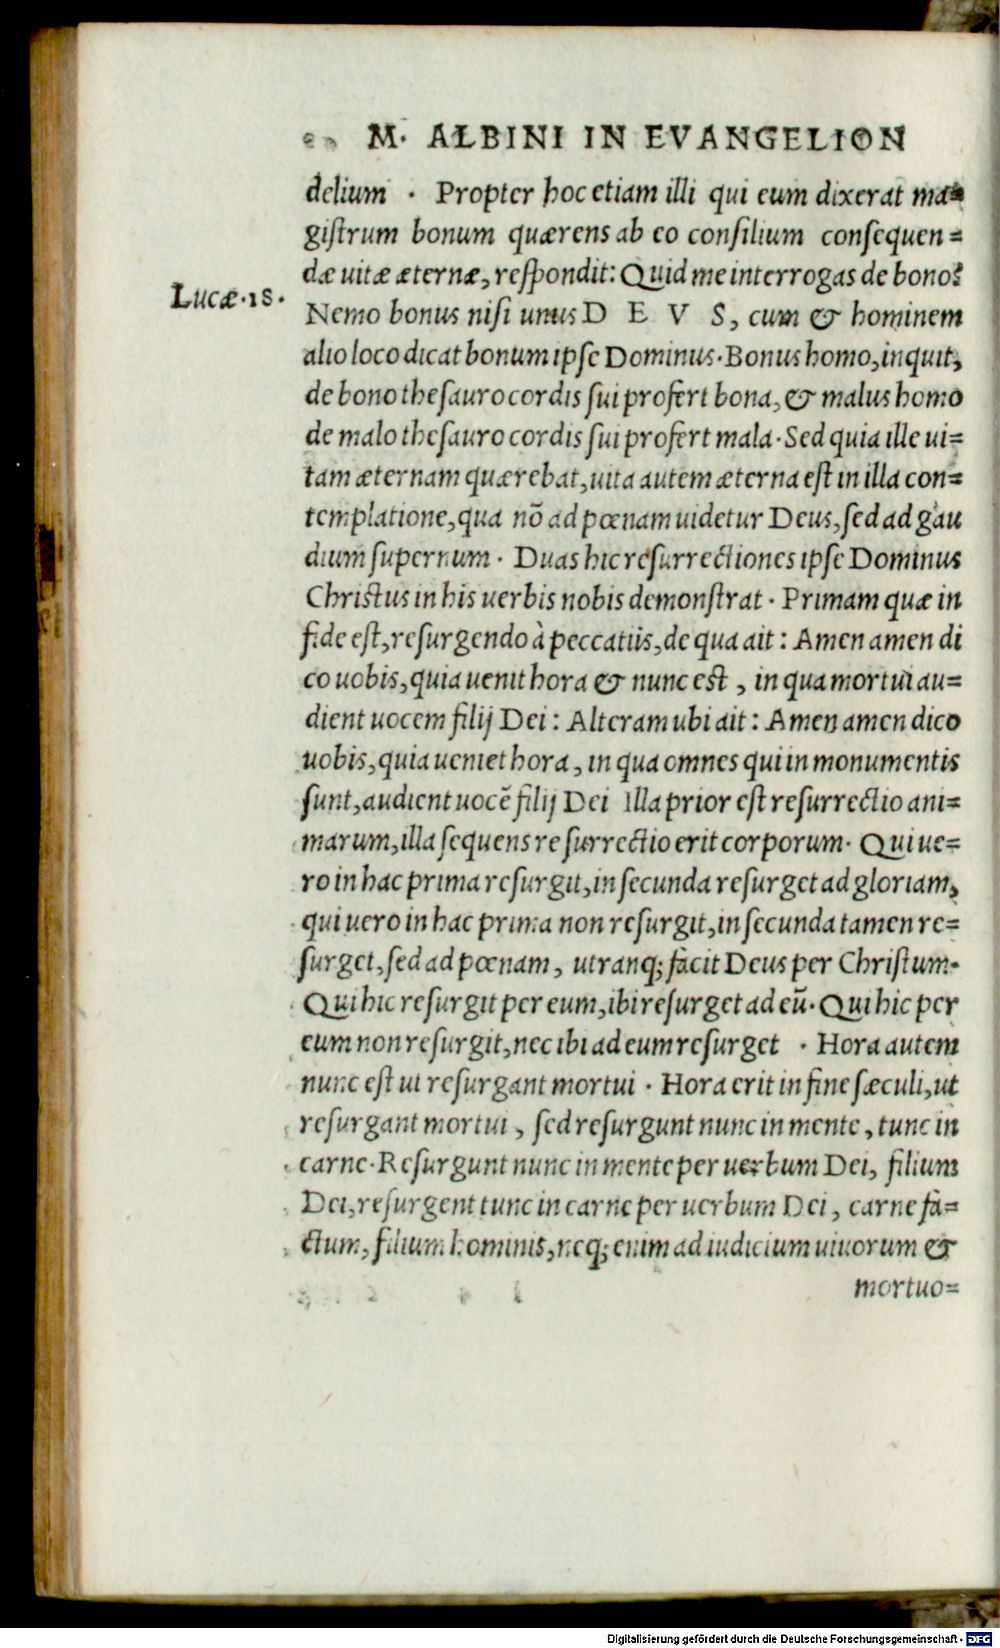 M. ALBINI IN EVANGELION
delium . Propter hoc etiam illi qui eum dixerat ma=
giſtrum bonum quærens ab eo conſilium conſequen=
dæ uitæ æternæ, reſpondit: Quid me interrogas de bono?
Lucæ.18.
Nemo bonus niſi unus D E V S, cum & hominem
alio loco dicat bonum ipſe Dominus. Bonus homo, inquit,
de bono theſauro cordis ſui profert bona, & malus homo
de malo theſauro cordis ſui profert mala. Sed quia ille ui=
tam æternam quærebat, uita autem æterna eſt in illa con=
templatione, qua nõ ad pœnam uidetur Deus, ſed ad gau
dium ſupernum . Duas hic reſurrectiones ipſe Dominus
Chriſtus in his uerbis nobis demonſtrat . Primam quæ in
fide eſt, reſurgendo à peccatiis, de qua ait : Amen amen di
co uobis, quia uenit hora & nunc eſt , in qua mortui au=
dient uocem filij Dei : Alteram ubi ait : Amen amen dico
uobis, quia ueniet hora , in qua omnes qui in monumentis
ſunt, audient uocẽ filij Dei Illa prior eſt reſurrectio ani=
marum, illa ſequens reſurrectio erit corporum. Qui ue=
ro in hac prima reſurgit, in ſecunda reſurget ad gloriam,
qui uero in hac prima non reſurgit, in ſecunda tamen re=
ſurget, ſed ad pœnam , utranq; facit Deus per Chriſtum.
Qui hic reſurgit per eum, ibi reſurget ad eũ. Qui hic per
eum non reſurgit, nec ibi ad eum reſurget . Hora autem
nunc eſt ut reſurgant mortui . Hora erit in fine ſæculi, ut
reſurgant mortui , ſed reſurgunt nunc in mente , tunc in
carne. Reſurgunt nunc in mente per uerbum Dei, filium
Dei, reſurgent tunc in carne per uerbum Dei , carne fa=
ctum, filium hominis, neq; enim ad iudicium uiuorum &
mortuo=
Digitalisierung gefördert durch die Deutsche Forschungsgemeinschaft - DFG